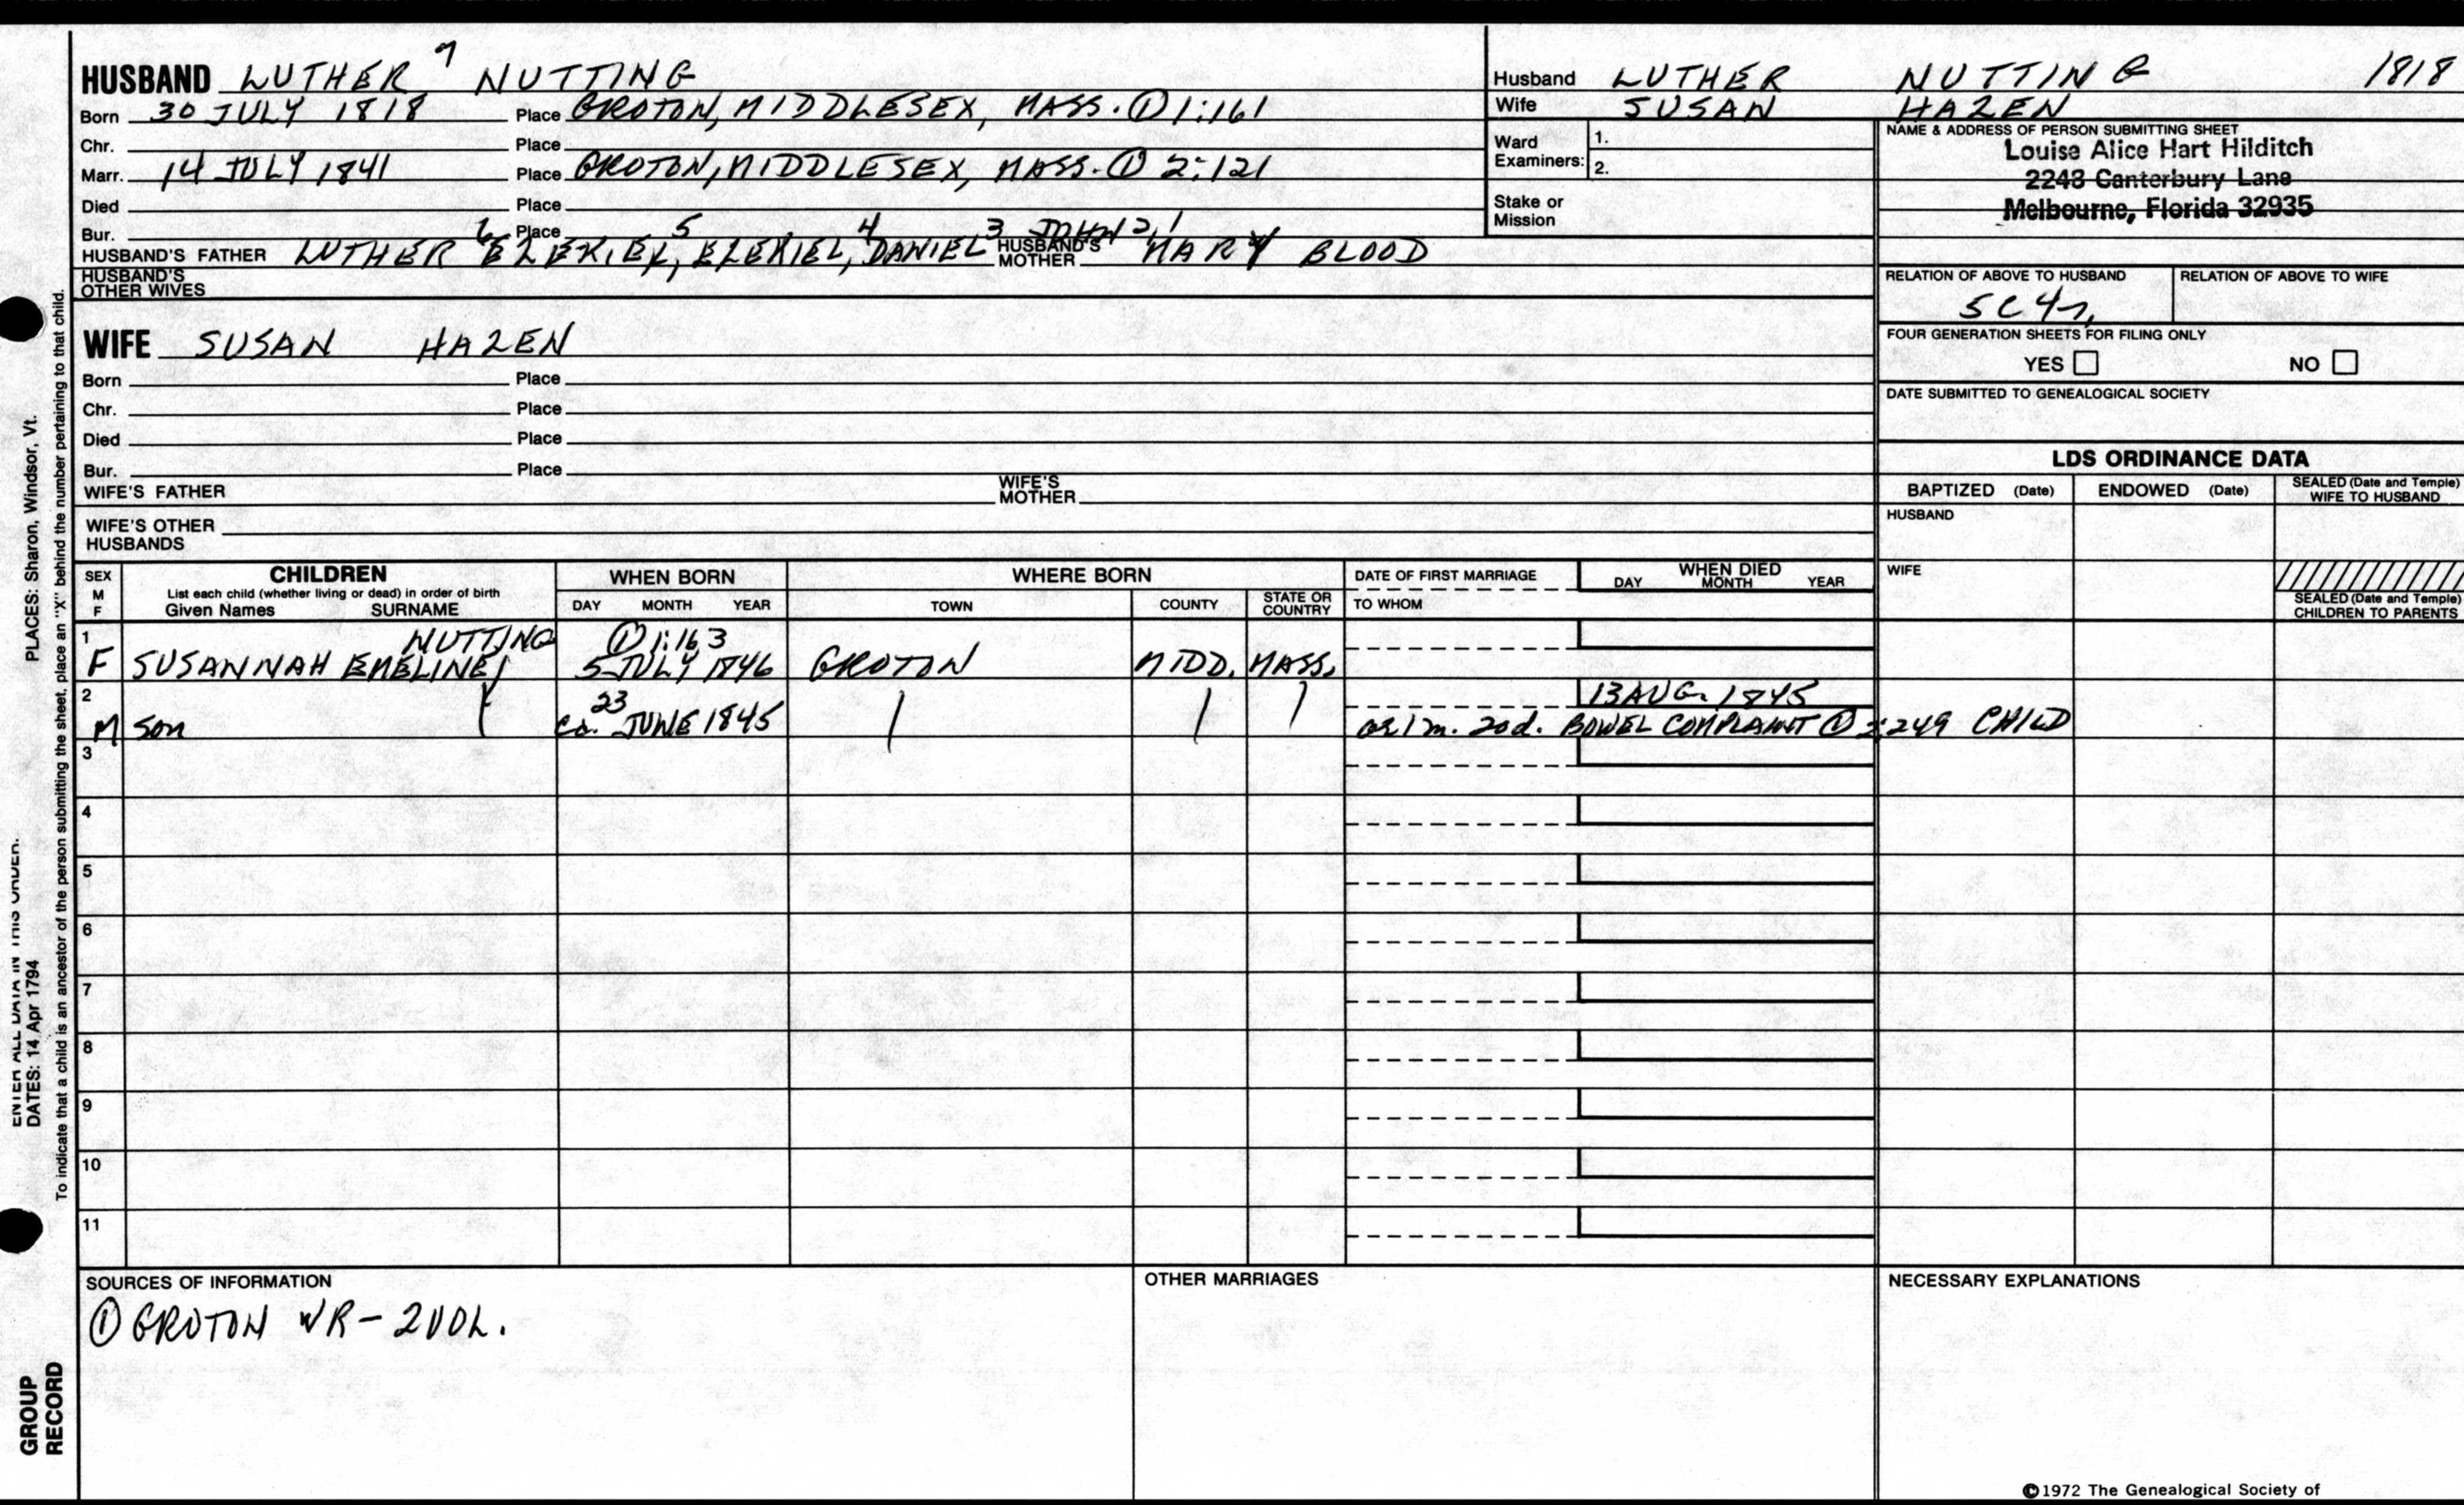 HUSBAND LUTHER 7 NUTTING
Born 30 JULY 1818 Place GROTON, MIDDLESEX, MASS. ① 1:161
Chr. Place
Marr. 14 JULY 1841 Place GROTON, MIDDLESEX, MASS. ① 2:121
Died Place
Bur. Place
HUSBAND'S FATHER LUTHER 6 EZEKIEL, 5 EZEKIEL, 4 DANIEL 3 JOHN 2,1 HUSBAND'S MOTHER MARY BLOOD
HUSBAND'S OTHER WIVES
Husband LUTHER NUTTING 1818
Wife SUSAN HAZEN
Ward Examiners: 1.
2.
Stake or Mission
NAME & ADDRESS OF PERSON SUBMITTING SHEET
Louise Alice Hart Hilditch
2248 Canterbury Lane
Melbourne, Florida 32935
RELATION OF ABOVE TO HUSBAND RELATION OF ABOVE TO WIFE
5C4r,
FOUR GENERATION SHEETS FOR FILING ONLY
YES NO
DATE SUBMITTED TO GENEALOGICAL SOCIETY
WIFE SUSAN HAZEN
Born Place
Chr. Place
Died Place
Bur. Place
WIFE'S FATHER WIFE'S MOTHER
WIFE'S OTHER HUSBANDS
LDS ORDINANCE DATA
BAPTIZED (Date) ENDOWED (Date) SEALED (Date and Temple) WIFE TO HUSBAND
HUSBAND
WIFE
SEALED (Date and Temple) CHILDREN TO PARENTS
SEX M F CHILDREN WHEN BORN WHERE BORN DATE OF FIRST MARRIAGE WHEN DIED
List each child (whether living or dead) in order of birth
Given Names SURNAME DAY MONTH YEAR TOWN COUNTY STATE OR COUNTRY TO WHOM DAY MONTH YEAR
1 NUTTING ① 1:163
F SUSANNAH EMELINE 5 JULY 1846 GROTON MIDD. MASS.
2 23 13 AUG. 1845
M son ca. JUNE 1845 ae 1 m. 20d. BOWEL COMPLAINT ① 2:249 CHILD
3
4
5
6
7
8
9
10
11
SOURCES OF INFORMATION
① GROTON VR - 2 VOL.
OTHER MARRIAGES
NECESSARY EXPLANATIONS
©1972 The Genealogical Society of
PLACES: Sharon, Windsor, Vt.
ENTER ALL DATA IN THIS ORDER.
DATES: 14 Apr 1794
To indicate that a child is an ancestor of the person submitting the sheet, place an "X" behind the number pertaining to that child.
GROUP
RECORD